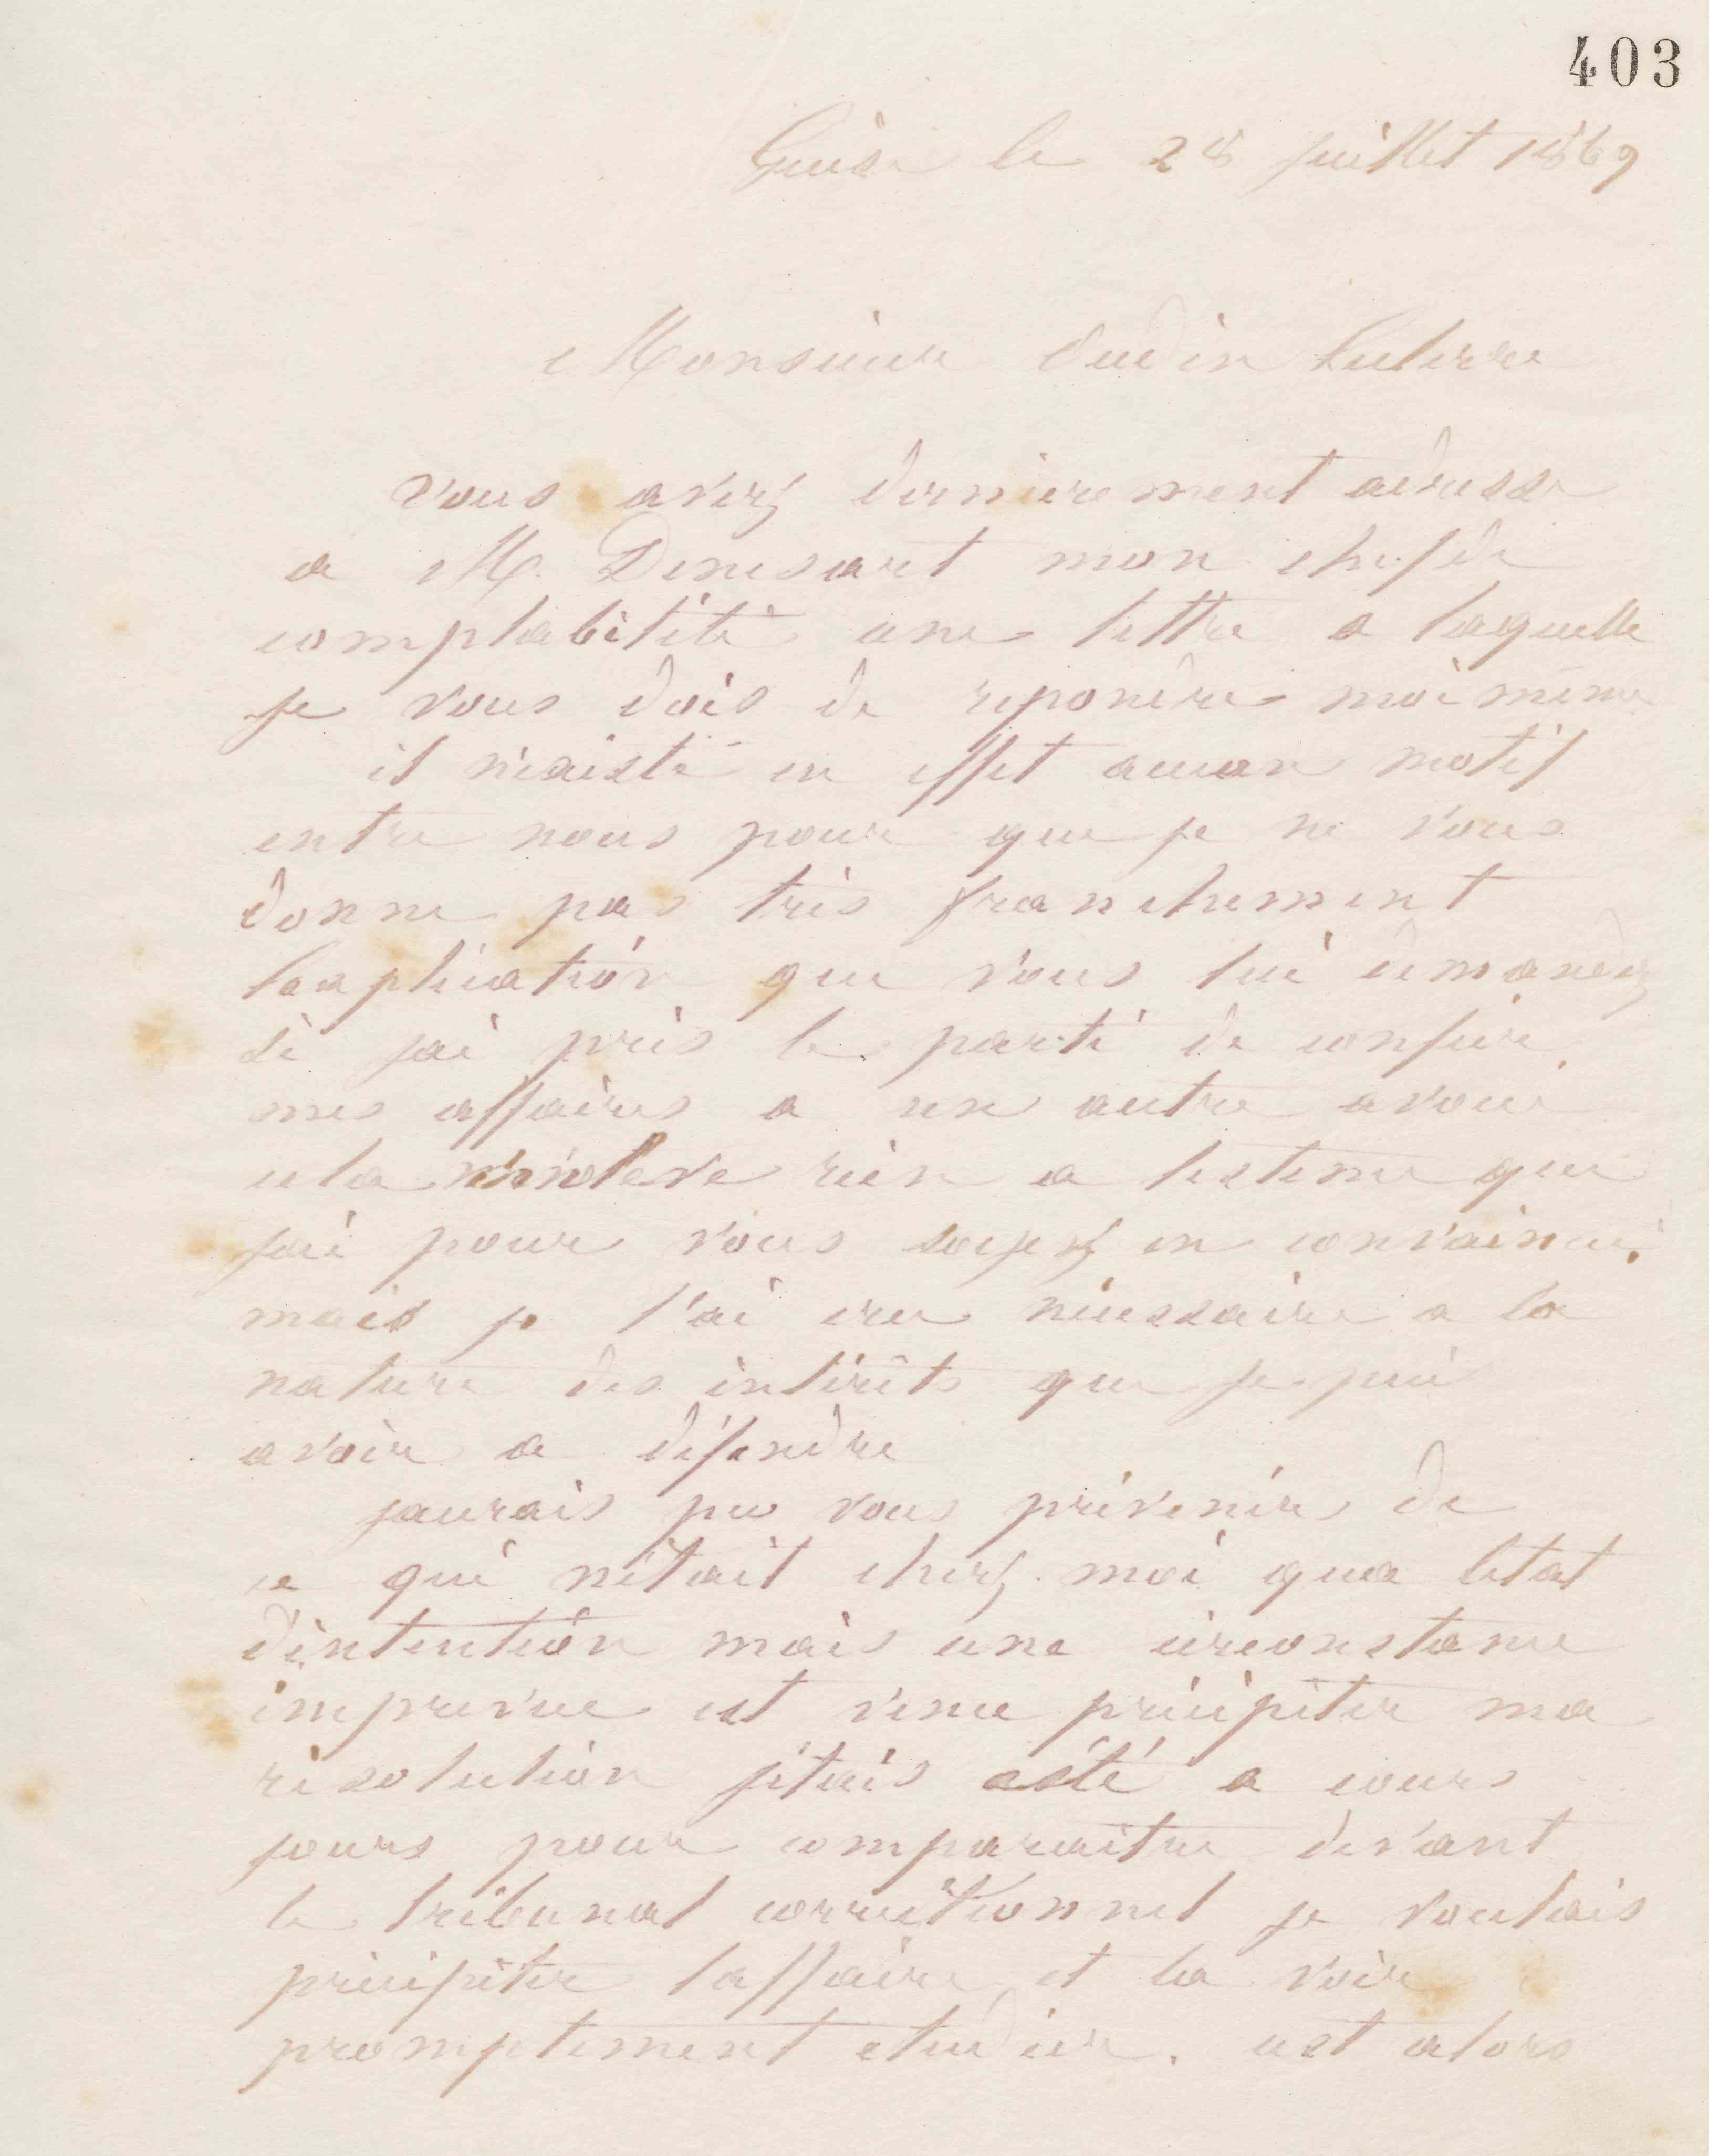 403
Guise le 28 juillet 1869
Monsieur Oudin Leclerre
vous avez dernierement adressé
a M. Denisart mon chef de
comptabilité une lettre a laquelle
je vous dois de repondre moi meme
il n'existe en effet aucun motif
entre nous pour que je ne vous
donne pas très franchement
lexplication que vous lui demandez
si jai pris le parti de confier
mes affaires a un autre avoué
cela n'enleve rien a lestime que
jai pour vous soyez en convaincu.
mais je l'ai cru nécessaire a la
nature des intérêts que je puis
avoir a défendre
jaurais pu vous prévenir de
ce qui nétait chez moi qua letat
dintention mais une circonstance
imprevue est venue précipiter ma
résolution jétais cité a cours
jours pour comparaitre devant
le tribunal correctionnel je voulais
précipiter laffaire et la voir
promptement etudier. cest alors